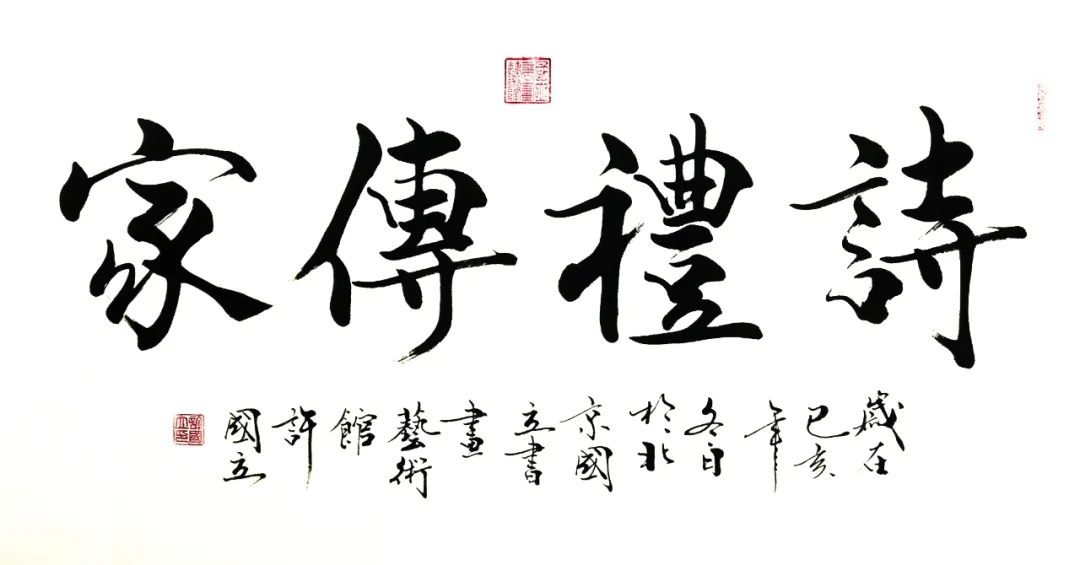 詩禮傳家
歲在
己亥
年
冬月
於北
京國
立書
畫
藝術
館
許
國立